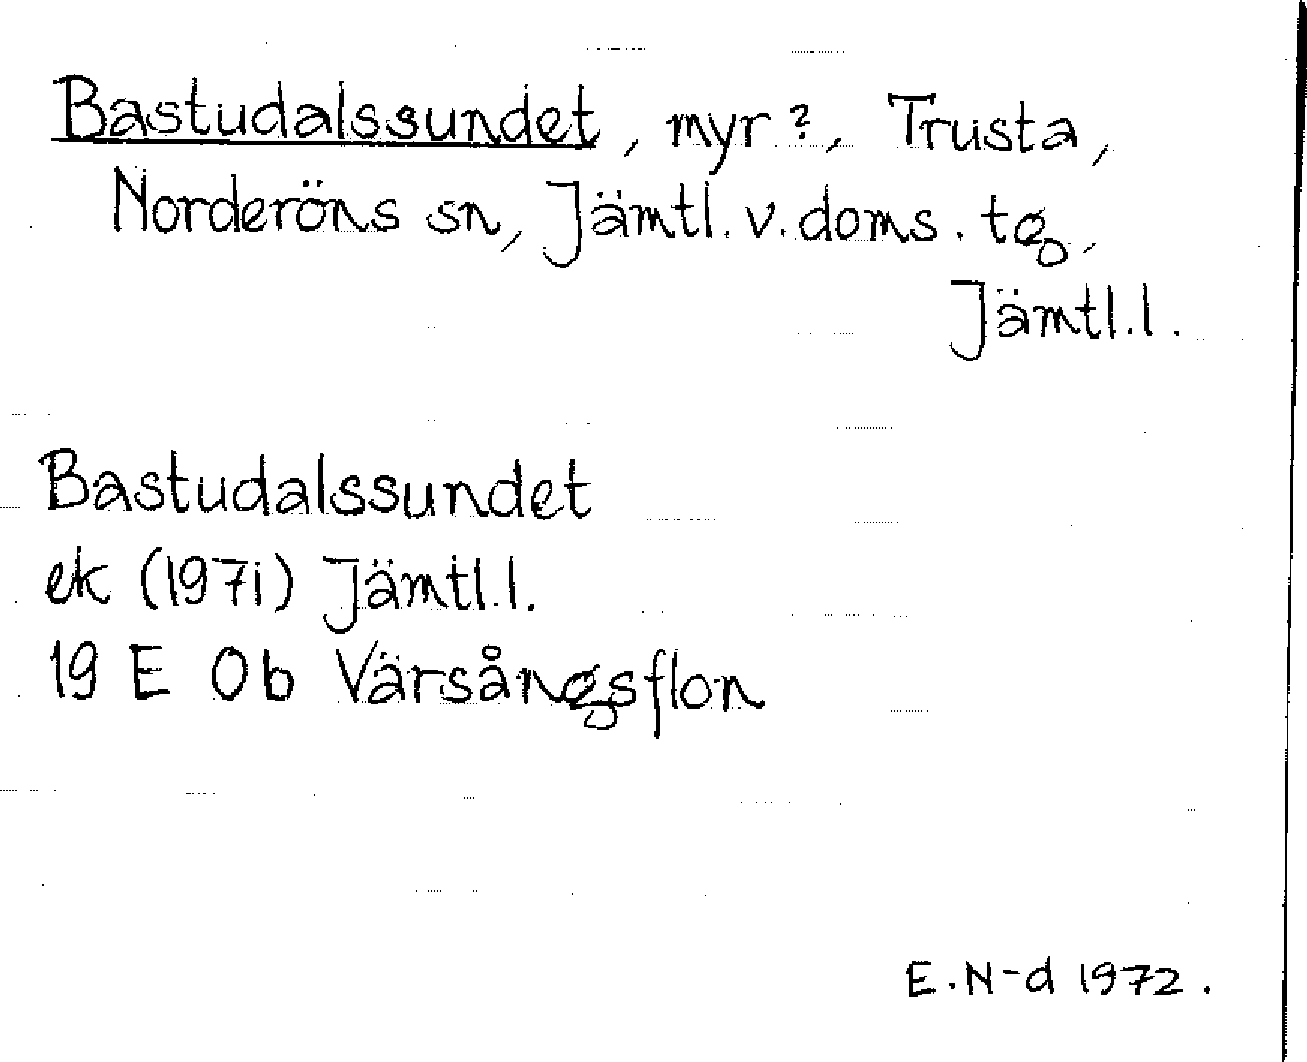 Bastudalssundet, myr?, Trusta,
Norderöns sn, Jämtl. v. doms. tg,
Jämtl. l.
Bastudalssundet
ek (1971) Jämtl. l.
19 E 0b Värsångsflon
E. N-d 1972.